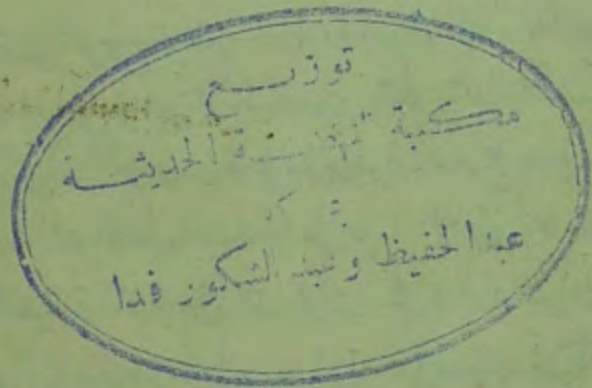 توزيع
مكتبة النهضة الحديثة
عبد الحفيظ وعبد الشكور فدا